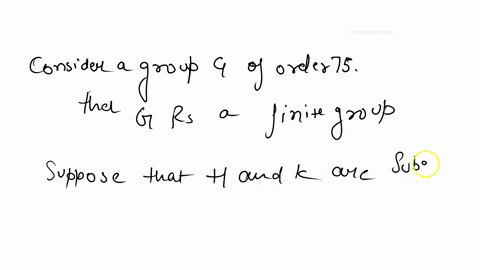 Consider a group G of order 75.
that G is a finite group
Suppose that H and K are Sub